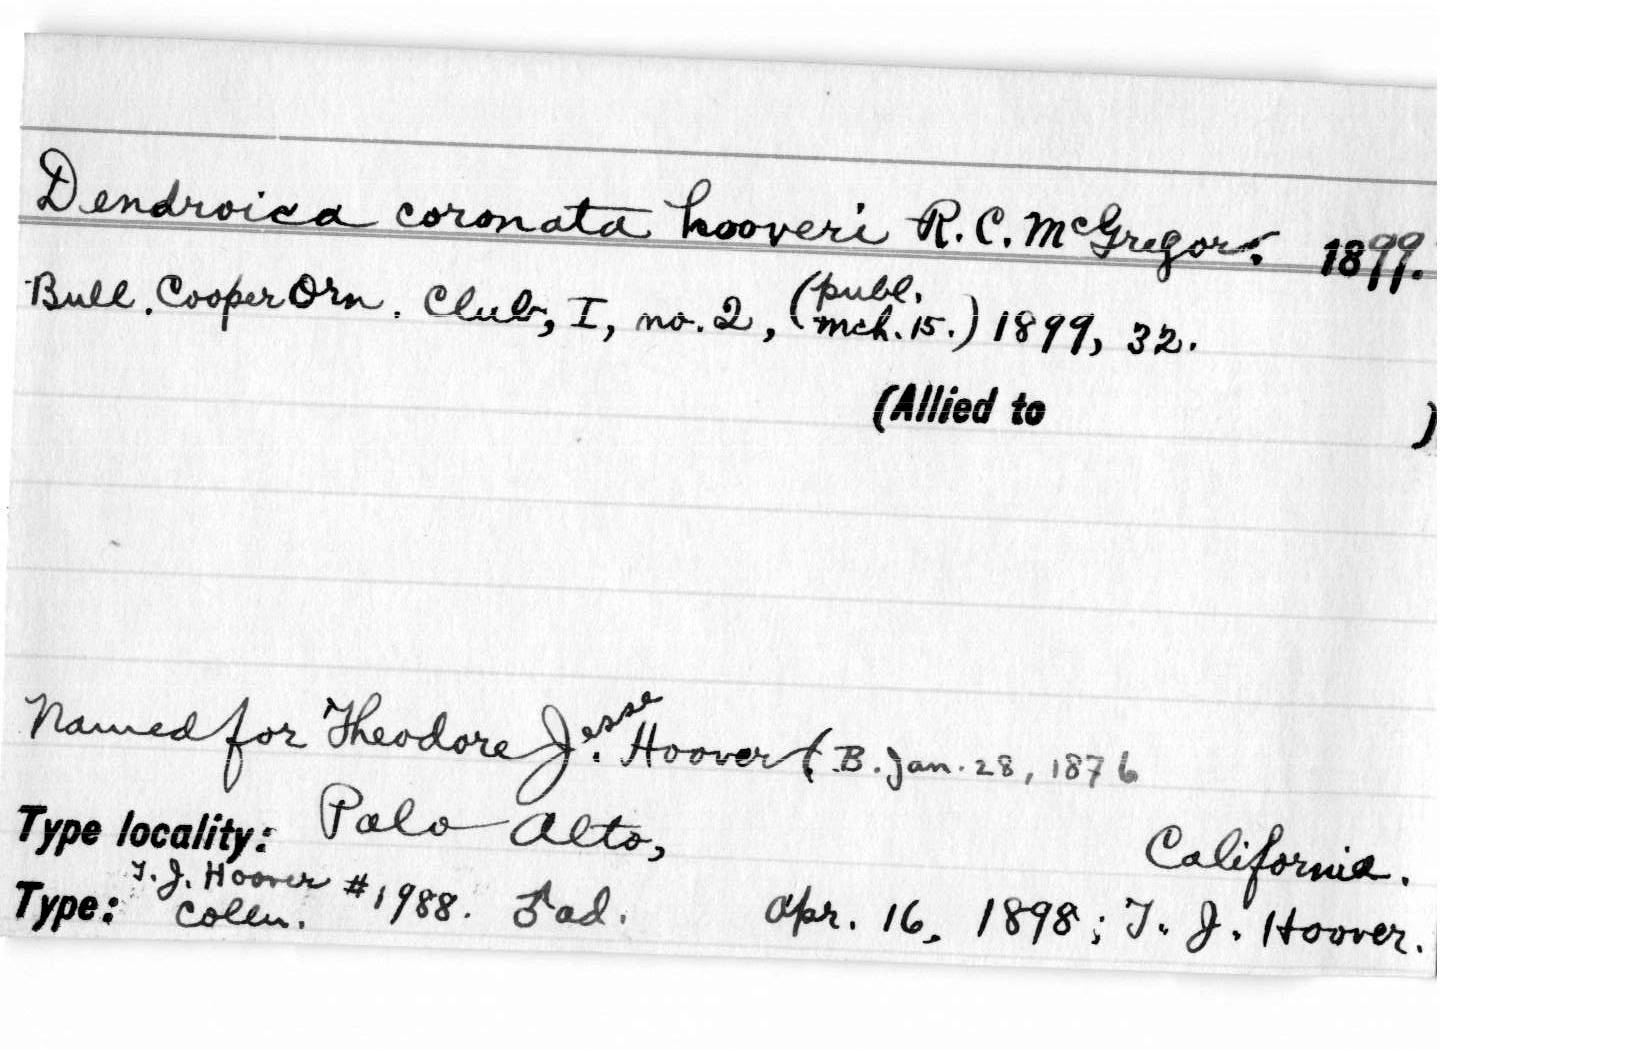 Dendroica coronata hooveri R. C. McGregor. 1899.
Bull. Cooper Orn. Club, I, no. 2, (publ. mch. 15.) 1899, 32.
(Allied to )
Named for Theodore Jesse Hoover (B. Jan. 28, 1876
Type locality: Palo Alto, California.
Type: T. J. Hoover Colln. #1988. ♂ ad. Apr. 16, 1898; T. J. Hoover.